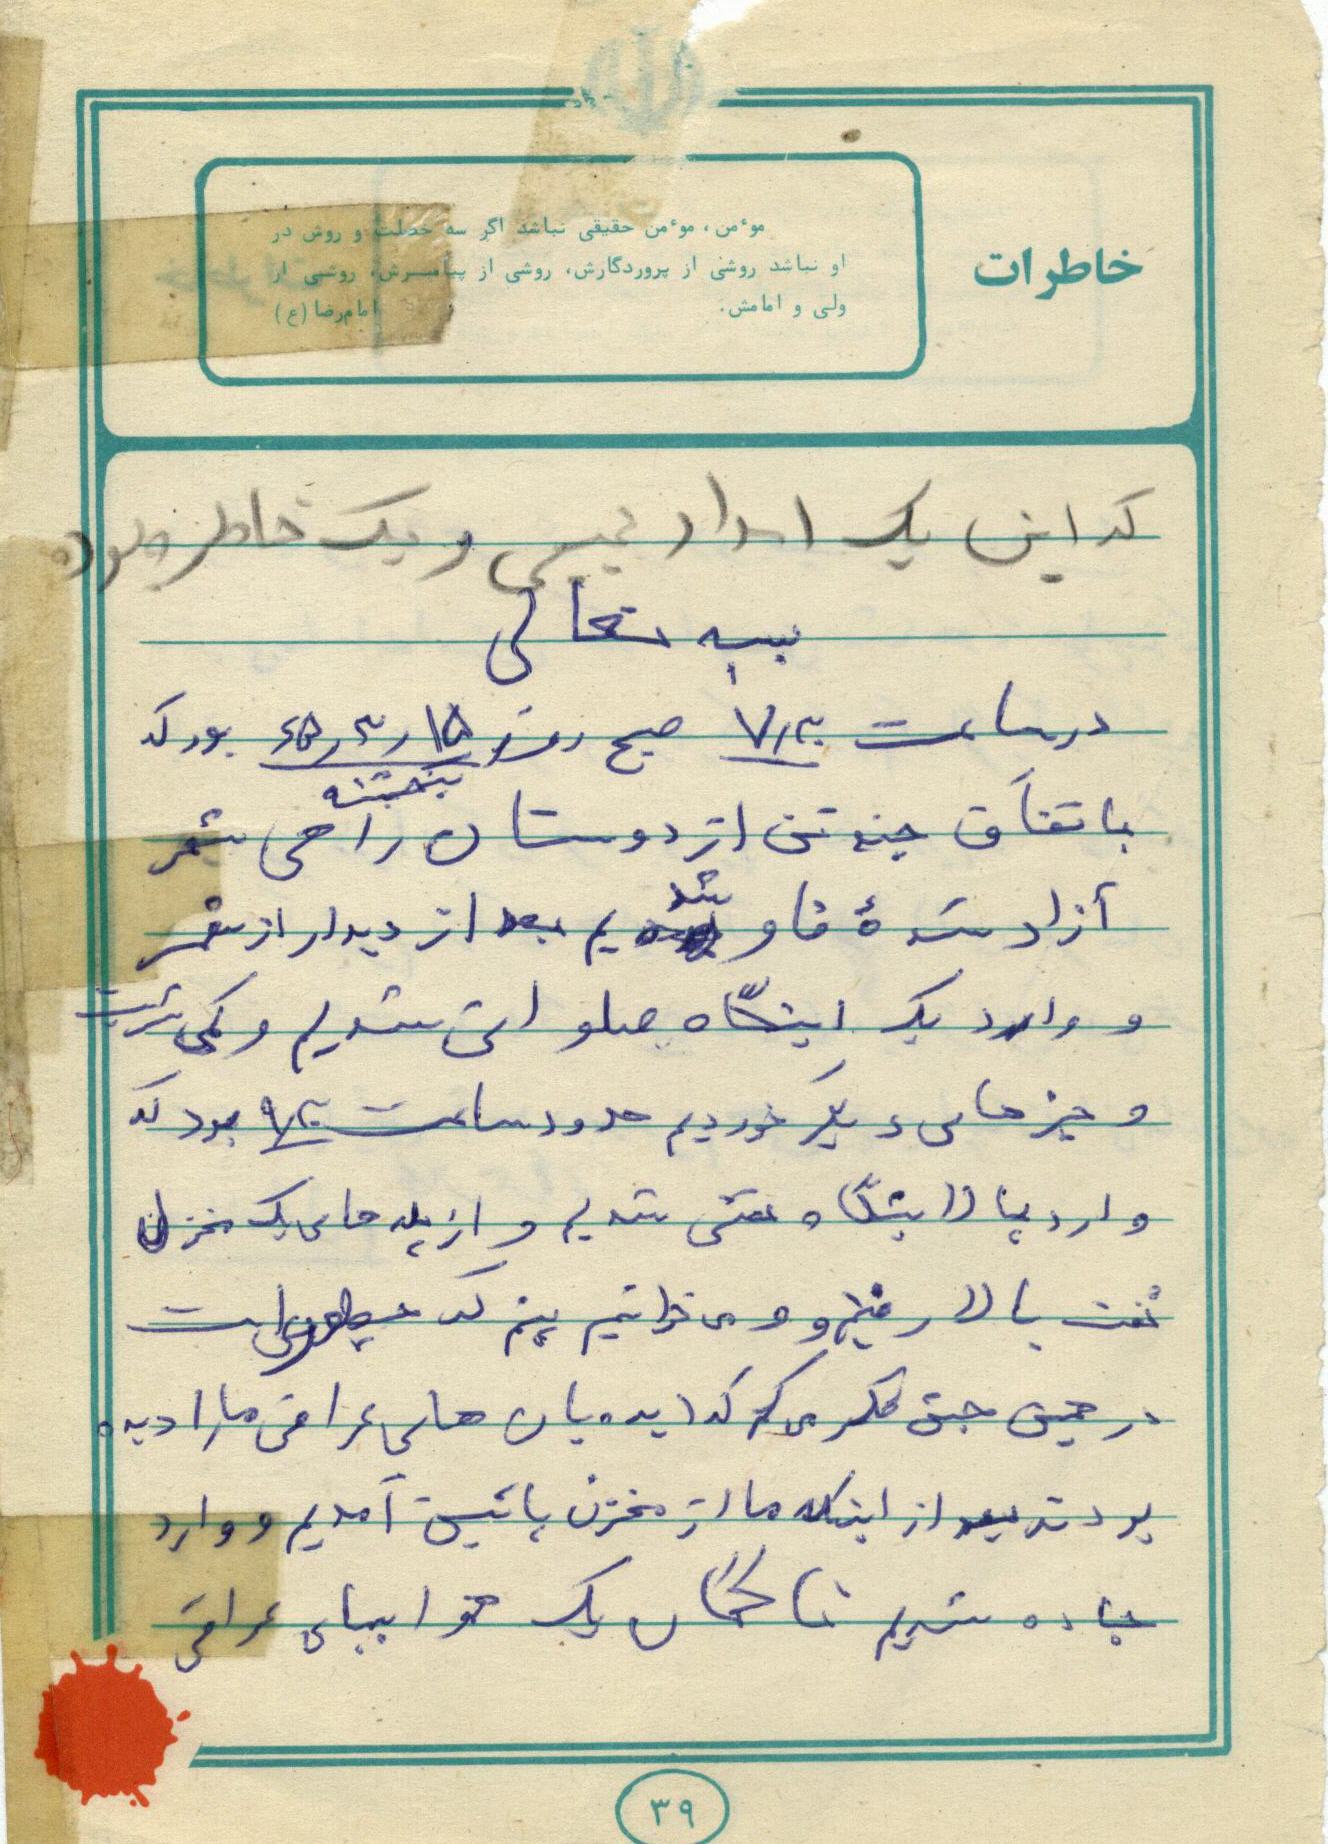 خاطرات
موٴمن، موٴمن حقیقی نباشد اگر سه خصلت و روش در
او نباشد روشی از پروردگارش، روشی از پیامبرش، روشی از
ولی و امامش. امام‌رضا (ع)
که این یک امداد غیبی و یک خاطره بوده
بسمه تعالی
در ساعت ۷/۳۰ صبح روز ۱۵ر۳ر۶۵ بود که
پنجشنبه
باتفاق چند تن از دوستان راهی شهر
آزاد شدهٔ فاو شدیم بعد از دیدار از شهر
و وارد یک ایستگاه صلواتی شدیم و کمی شربت
و چیزهای دیگر خوردیم حدود ساعت ۹/۳۰ بود که
وارد پالایشگاه نفتی شدیم و از پله های یک مخزن
نفت بالا رفتیم و می خواستیم ببینیم که چطوری است
در همین حین فکر می کنم که دیده بان های عراقی ما را دیده
بودند بعد از اینکه ما از مخزن پائین آمدیم و وارد
جاده شدیم ناگهان یک هواپیمای عراقی
۳۹